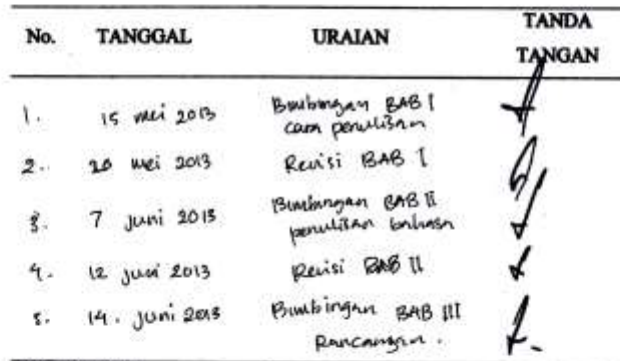 No. TANGGAL URAIAN TANDA TANGAN
1. 15 mei 2013 Bimbingan BAB I
cara penulisan
2. 20 mei 2013 Revisi BAB I
3. 7 juni 2013 Bimbingan BAB II
penulisan bahasa
4. 12 juni 2013 Revisi BAB II
5. 14. juni 2013 Bimbingan BAB III
Rancangan.